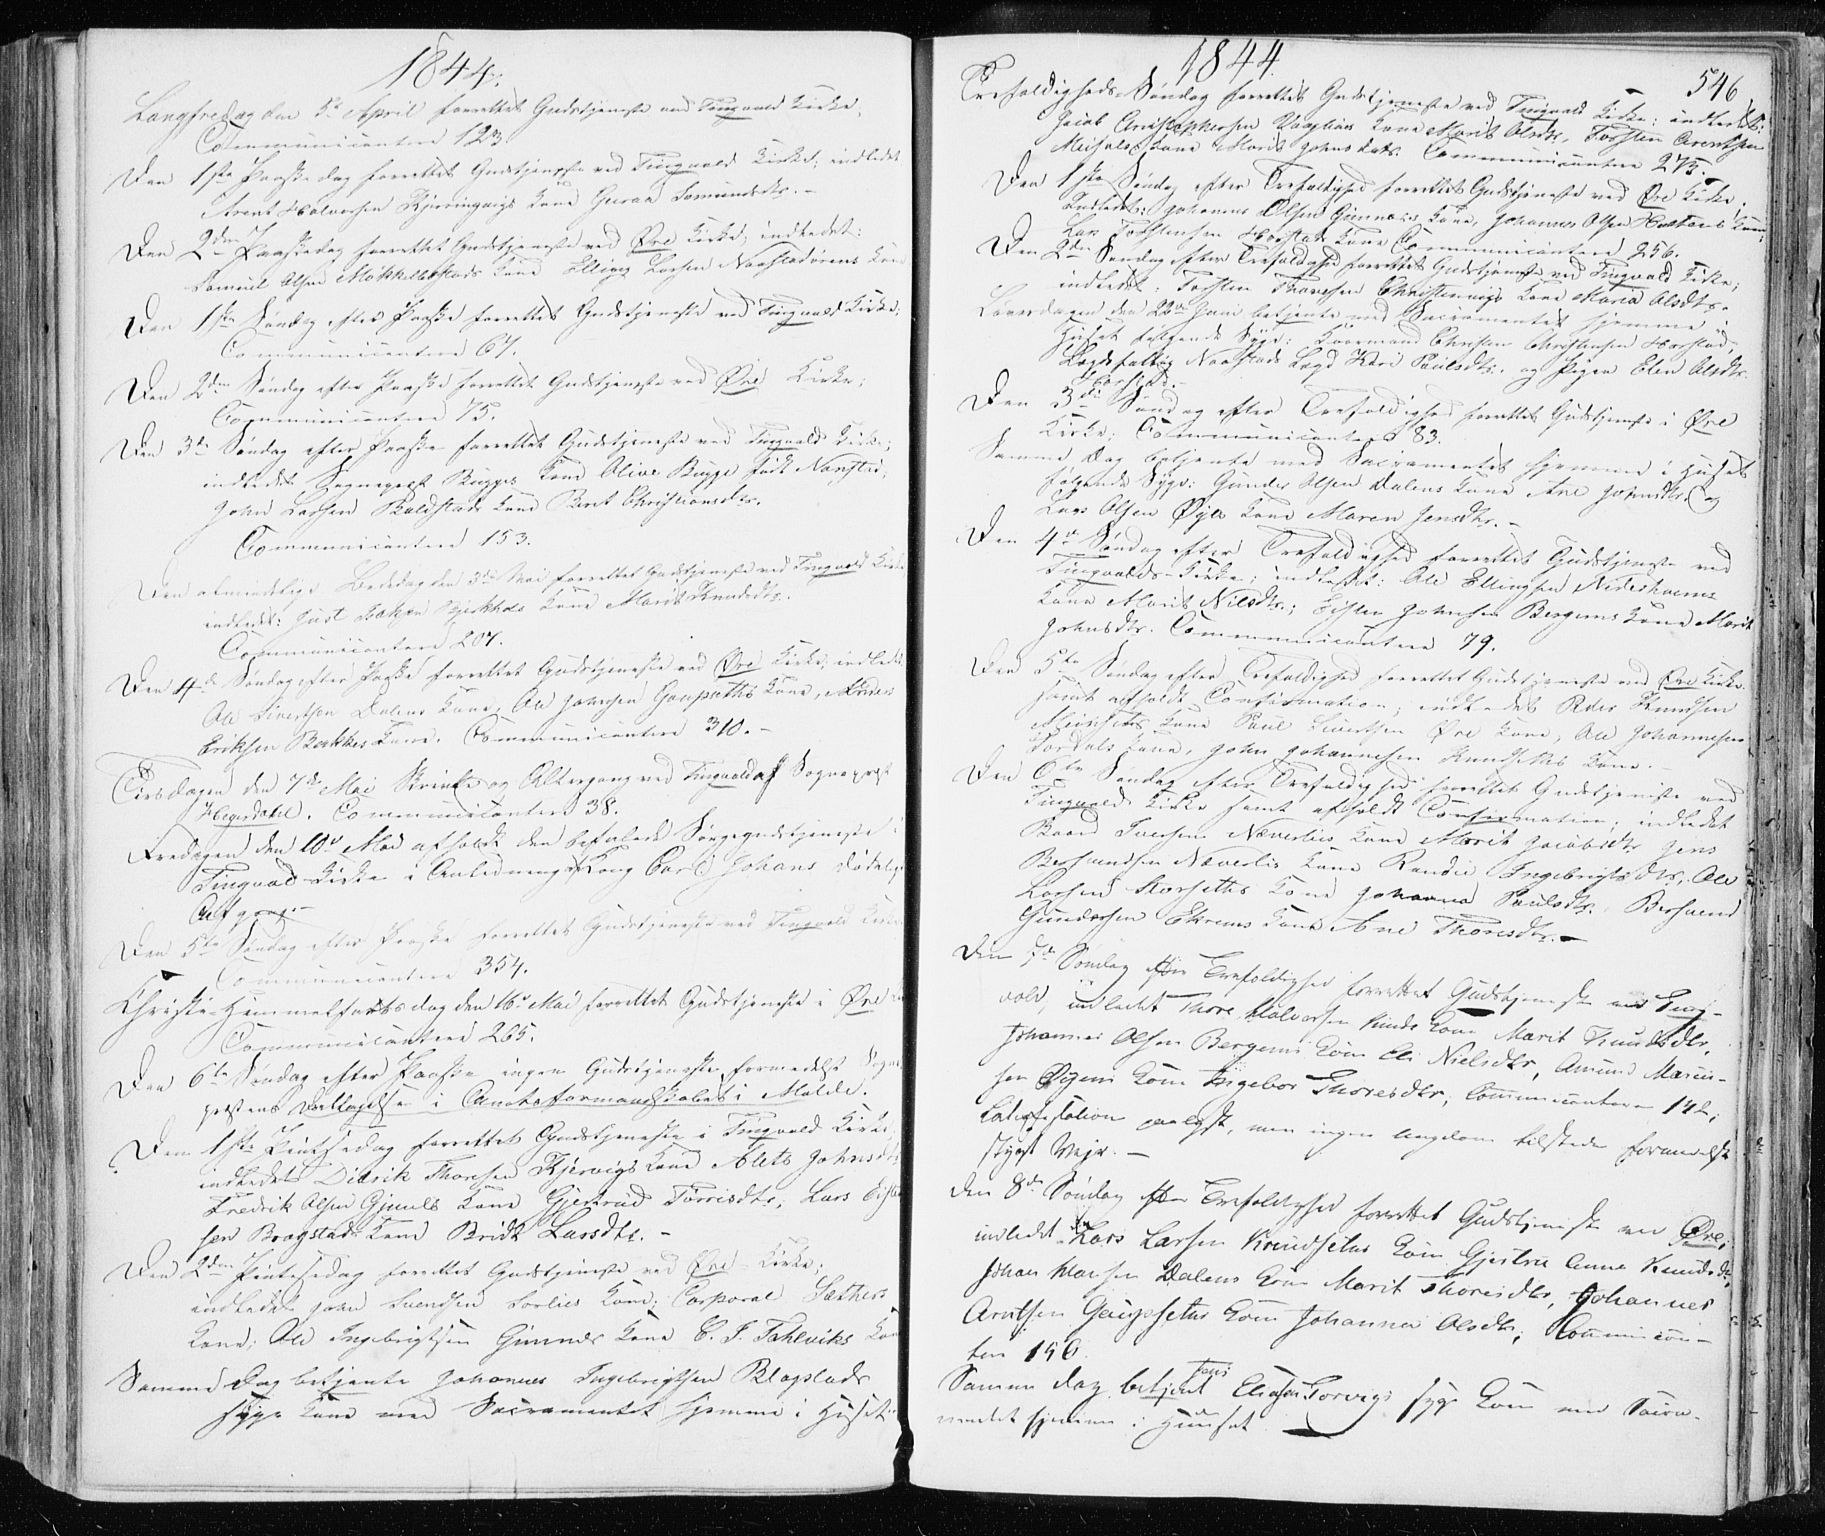 1844.
Langfredag den 5te April forrettet Gudstjeneste ved Tingvold Kirke,
Communicantere 123
Den 1ste Paaskedag forrettet Gudstjeneste ved Tingvold Kirke; indledet
Arent Halvorsen Kjerringvigs Kone Guraa Tomasdtr. –
Den 2den Paaskedag forrettet Gudstjeneste ved Øre Kirke, indledet:
Samuel Olsen Mokkelbostads Kone Elling Larsen Naastadørens Kone
Den 1ste Søndag efter Paaske forrettet Gudstjeneste ved Tingvold Kirke;
Communicantere 67.
Den 2den Søndag efter Paaske forrettet Gudstjeneste ved Øre Kirke;
Communicantere 75.
Den 3die Søndag efter Paaske forrettet Gudstjeneste ved Tingvold Kirke;
indledet Sognepræst Bugges Kone Olive Bugge født
John Larsen Kone Berit Christiansdtr.
Communicantere 153.
Den almindelige Bededag den 3die Mai forrettet Gudstjeneste ved Tingvold Kirke
indledet: Kone Marit Knudsdtr.
Communicantere 207.
Den 4de Søndag efter Paaske forrettet Gudstjeneste ved Øre Kirke, indledet
Ole Sivertsen Dalens Kone, Ole Johnsen Gaupsæths Kone, Anders
Eriksen Bakkes Kone. Communicantere 310. –
Tirsdagen den 7de Mai Skrivte og Altergang ved Tingvold af Sognepræst
Hegerdahl. Communicantere 38.
Fredagen den 10de Mai afholdt den befalede Sørgegudstjeneste i
Tingvold Kirke i Anledning af Kong Carl Johans dødelige
Afgang. –
Den 5te Søndag efter Paaske forrettet Gudstjeneste ved Tingvold Kirke
Communicantere 354.
Christi-Himmelfartsdag den 16de Mai forrettet Gudstjeneste i Øre
Communicantere 265.
Den 6te Søndag efter Paaske ingen Gudstjeneste formedelst Sogne
præstens Deltagelse i Amtsformandskabet i Molde.
Den 1ste Pintsedag forrettet Gudstjeneste i Tingvold Kirke
indledet Didrik Thoresen Kjørvigs Kone Alets Johnsdtr
Fredrik Olsen Gjmnls Kone Gjertrud Torrisdtr, Lars
sen Bragstad Kone Bridt Larsdtr. –
Den 2den Pintsedag forrettet Gudstjeneste ved Øre Kirke;
indledet John Svendsen Sorlies Kone; Corporal Sæthers
Kone; Ole Ingebrigtsen Gunnes Kone C. J. Tahlviks Kone
Samme Dag betjente Johannes Ingebrigtsen
syge Kone med Sacramentet hjemme i Huset.
1844
546
Trefoldigheds-Søndag forrettet Gudstjeneste ved Tingvold Kirke; indledet:
Jacob Christophersen Vaaglies Kone Marit Olsdtr, Torsten Arentsen
Meisals Kone Marit Johnsdatt. Communicantere 273.
Den 1ste Søndag efter Trefoldighed forrettet Gudstjeneste ved Øre Kirke.
indledet: Johannes Olsen Gunnes Kone, Johannes Olsen Kone;
Lars Torstensen Horstads Kone Communicantere 256.
Den 2den Søndag efter Trefoldighed forrettet Gudstjeneste ved Tingvold Kirke;
indledet: Torsten Thoresen Christenvigs Kone Maria Olsdtr.
Løverdagen den 22de Juni betjente med Sacramentet hjemme i
Huset følgende Syge: Christen Christensen Horstad,
Lægdsfattig Naastads Lægd Kari Poulsdtr. og Pigen Elen Olsdtr
Horstad.
Den 3die Søndag efter Trefoldighed forrettet Gudstjeneste i Øre
Kirke; Communicantere 83.
Samme Dag betjente med Sacramentet hjemme i Huset
følgende Syge: Gunder Olsen Dalens Kone Ane Johnsdtr. og
Lars Olsen Øye Kone Maren Jensdtr. –
Den 4de Søndag efter Trefoldighed forrettet Gudstjeneste ved
Tingvolds-Kirke; indledet: Ole Ellingsen
Kone Marit Nilsdtr.; Johnsen Bergums Kone Marit
Johnsdtr. Communicantere 79.
Den 5te Søndag efter Trefoldighed forrettet Gudstjeneste ved Øre Kirke
samt afholdt Confirmation; indledet Peder Knudsen
Kone Poul Sivertsen Øre Kone, Ole Johannesen
Tordals Kone, John Johannesen Knudsæths Kone. –
Den 6te Søndag efter Trefoldighed forrettet Gudstjeneste ved
Tingvold Kirke samt afholdt Confirmation; indledet
Baard Iversen Næverlies Kone Marit Jacobsdtr Jens
Bersvendsen Næverlie Kone Randie Ingebrigtsdtr, Ole
Larsen Storsetths Kone Johanna Poulsdtr. Bersvend
Gundersen Ekrems Kone Ane Thoresdtr. –
Den 7de Søndag efter Trefoldighed forrettet Gudstjeneste ved Ting-
vold, indledet Thore Halvorsen Kone Marit Knudsdtr,
Johannes Olsen Bergems Kone Eli Nielsdtr, Amund
sen Øyens Kone Ingebor Thoresdtr, Communicantere 142;
Catechisation paalyst, men ingen Ungdom tilstede formedelst
stygt Vejr. –
Den 8de Søndag efter Trefoldighed forrettet Gudstjeneste ved Øre;
indledet Lars Larsen Knudsetus Kone Gjertru Anna Knudsdtr,
Johan Dalens Kone Marit Thoresdtr, Johannes
Arntsen Gaupsetus Kone Johanna Olsdtr, Communican-
ter 156.
Samme Dag betjent Eliasen Torvigs syge Kone med Sacra-
mentet hjemme i Huuset.